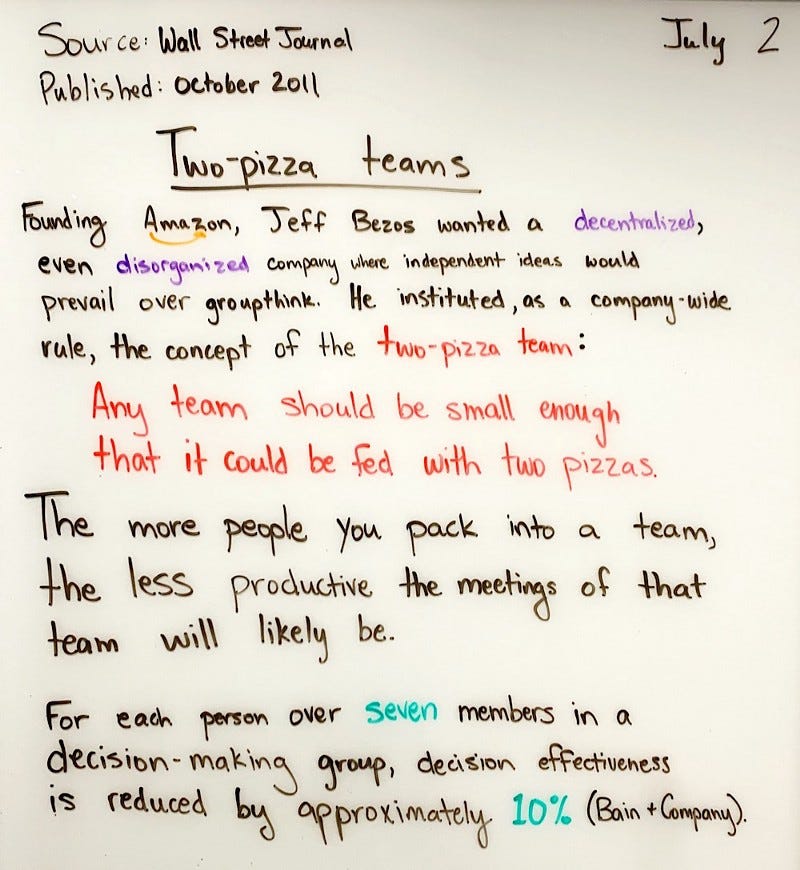 Source: Wall Street Journal
July 2
Published: October 2011
Two-pizza teams
Founding Amazon, Jeff Bezos wanted a decentralized,
even disorganized company where independent ideas would
prevail over groupthink. He instituted, as a company-wide
rule, the concept of the two-pizza team:
Any team should be small enough
that it could be fed with two pizzas.
The more people you pack into a team,
the less productive the meetings of that
team will likely be.
For each person over seven members in a
decision-making group, decision effectiveness
is reduced by approximately 10% (Bain + Company).